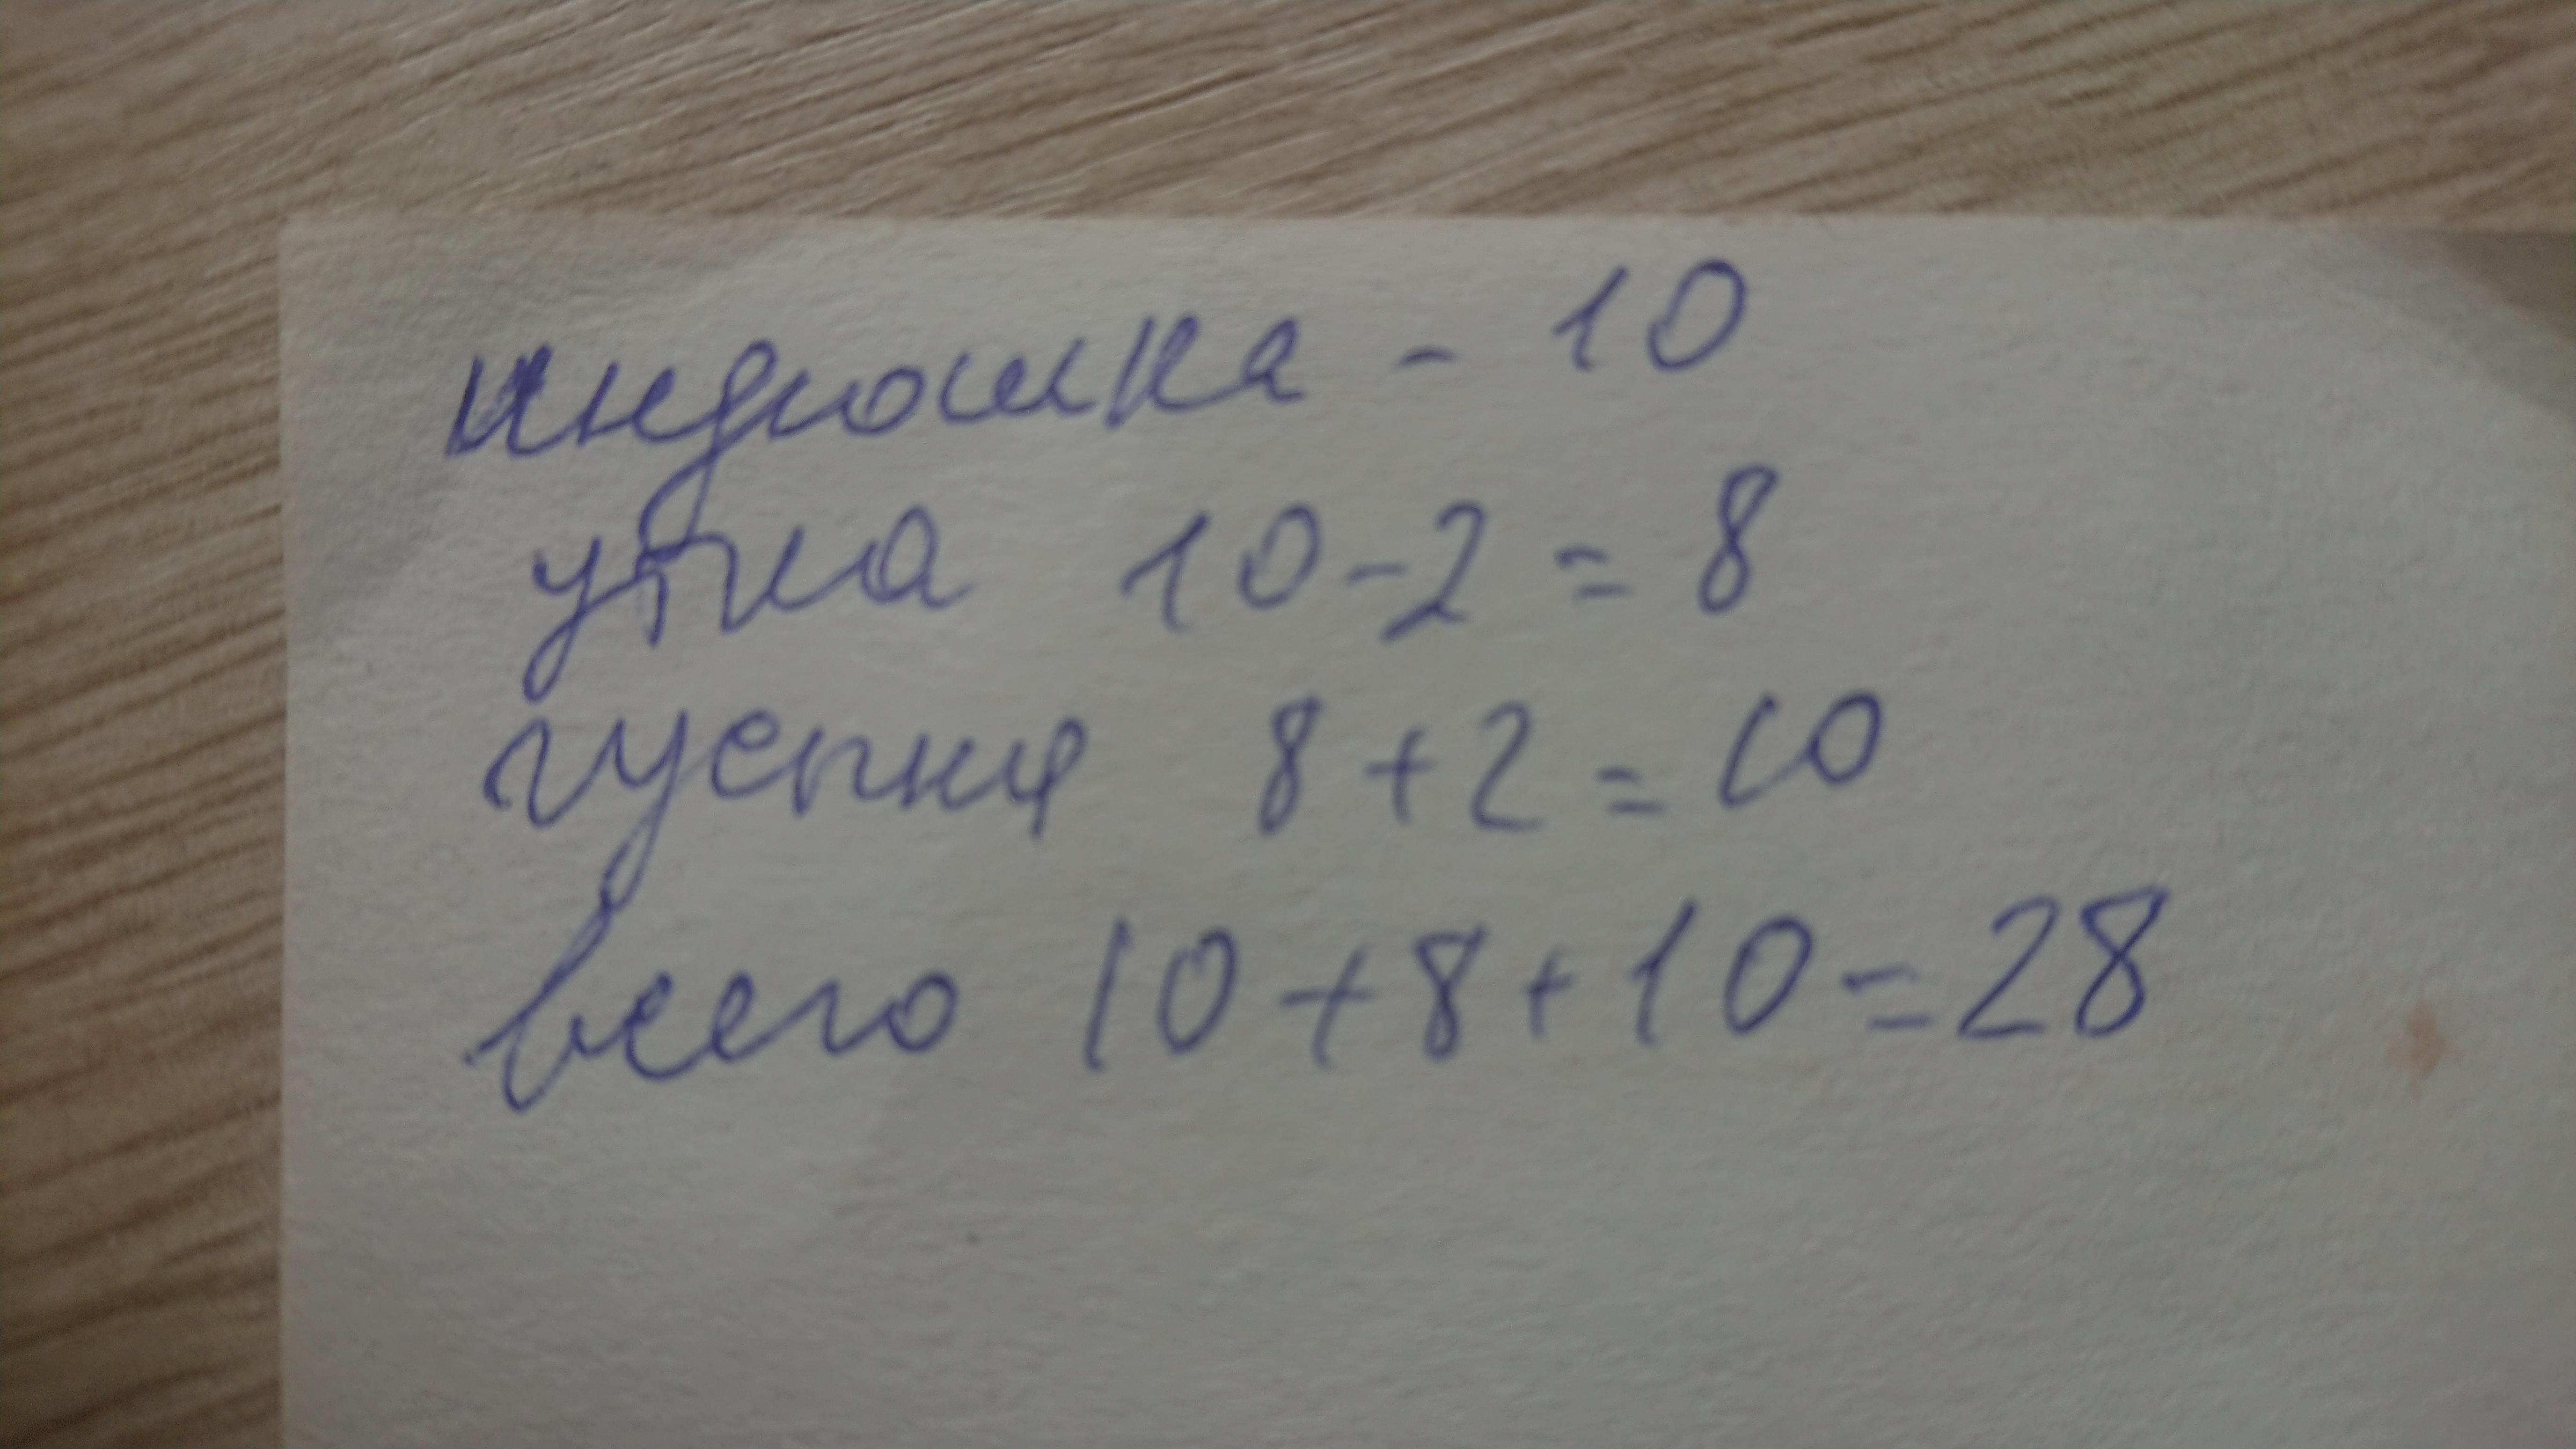 индюшка - 10
утка 10-2 = 8
гусыня 8+2=10
всего 10+8+10=28